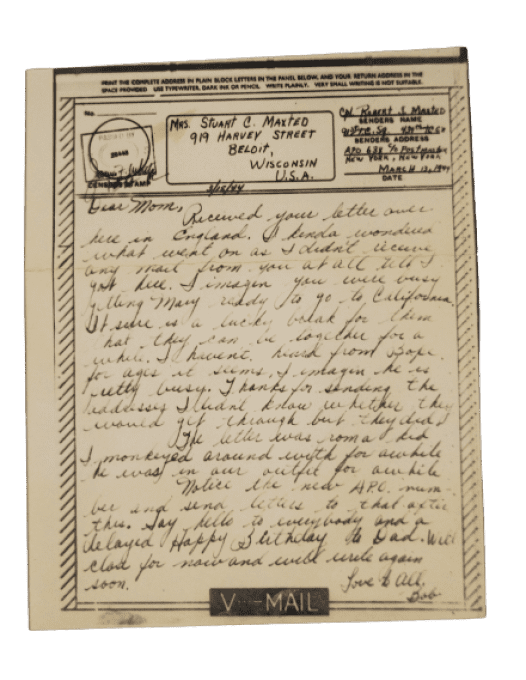 PRINT THE COMPLETE ADDRESS IN PLAIN BLOCK LETTERS IN THE PANEL BELOW, AND YOUR RETURN ADDRESS IN THE
SPACE PROVIDED. USE TYPEWRITER, DARK INK OR PENCIL. WRITE PLAINLY. VERY SMALL WRITING IS NOT SUITABLE.
MRS. STUART C. MAXTED
919 HARVEY STREET
BELOIT,
WISCONSIN
U.S.A.
CENSOR'S STAMP
Robert S. Maxted
SENDER'S NAME
SENDER'S ADDRESS
APO 638 c/o Postmaster
NEW YORK, NEW YORK
MARCH 1944
DATE
Dear Mom,
Received your letter over
here in England. I kinda wondered
what went on as I didn't receive
any mail from you at all till I
got here. I imagen you were busy
getting Mary ready to go to California.
It sure is a lucky break for them
that they can be together for a
while. I havent heard from
for ages it seems. I imagen he is
pretty busy. Thanks for sending the
addresses I didnt know whether they
would get through but they did.
The letter was from a kid
I monkeyed around with for awhile
he was in our outfit for awhile
Notice the new A.P.O. num-
ber and send letters to that after
this. Say hello to everybody and a
delayed Happy Birthday to Dad. Will
close for now and will write again
soon.
Love to All.
Bob
V-MAIL